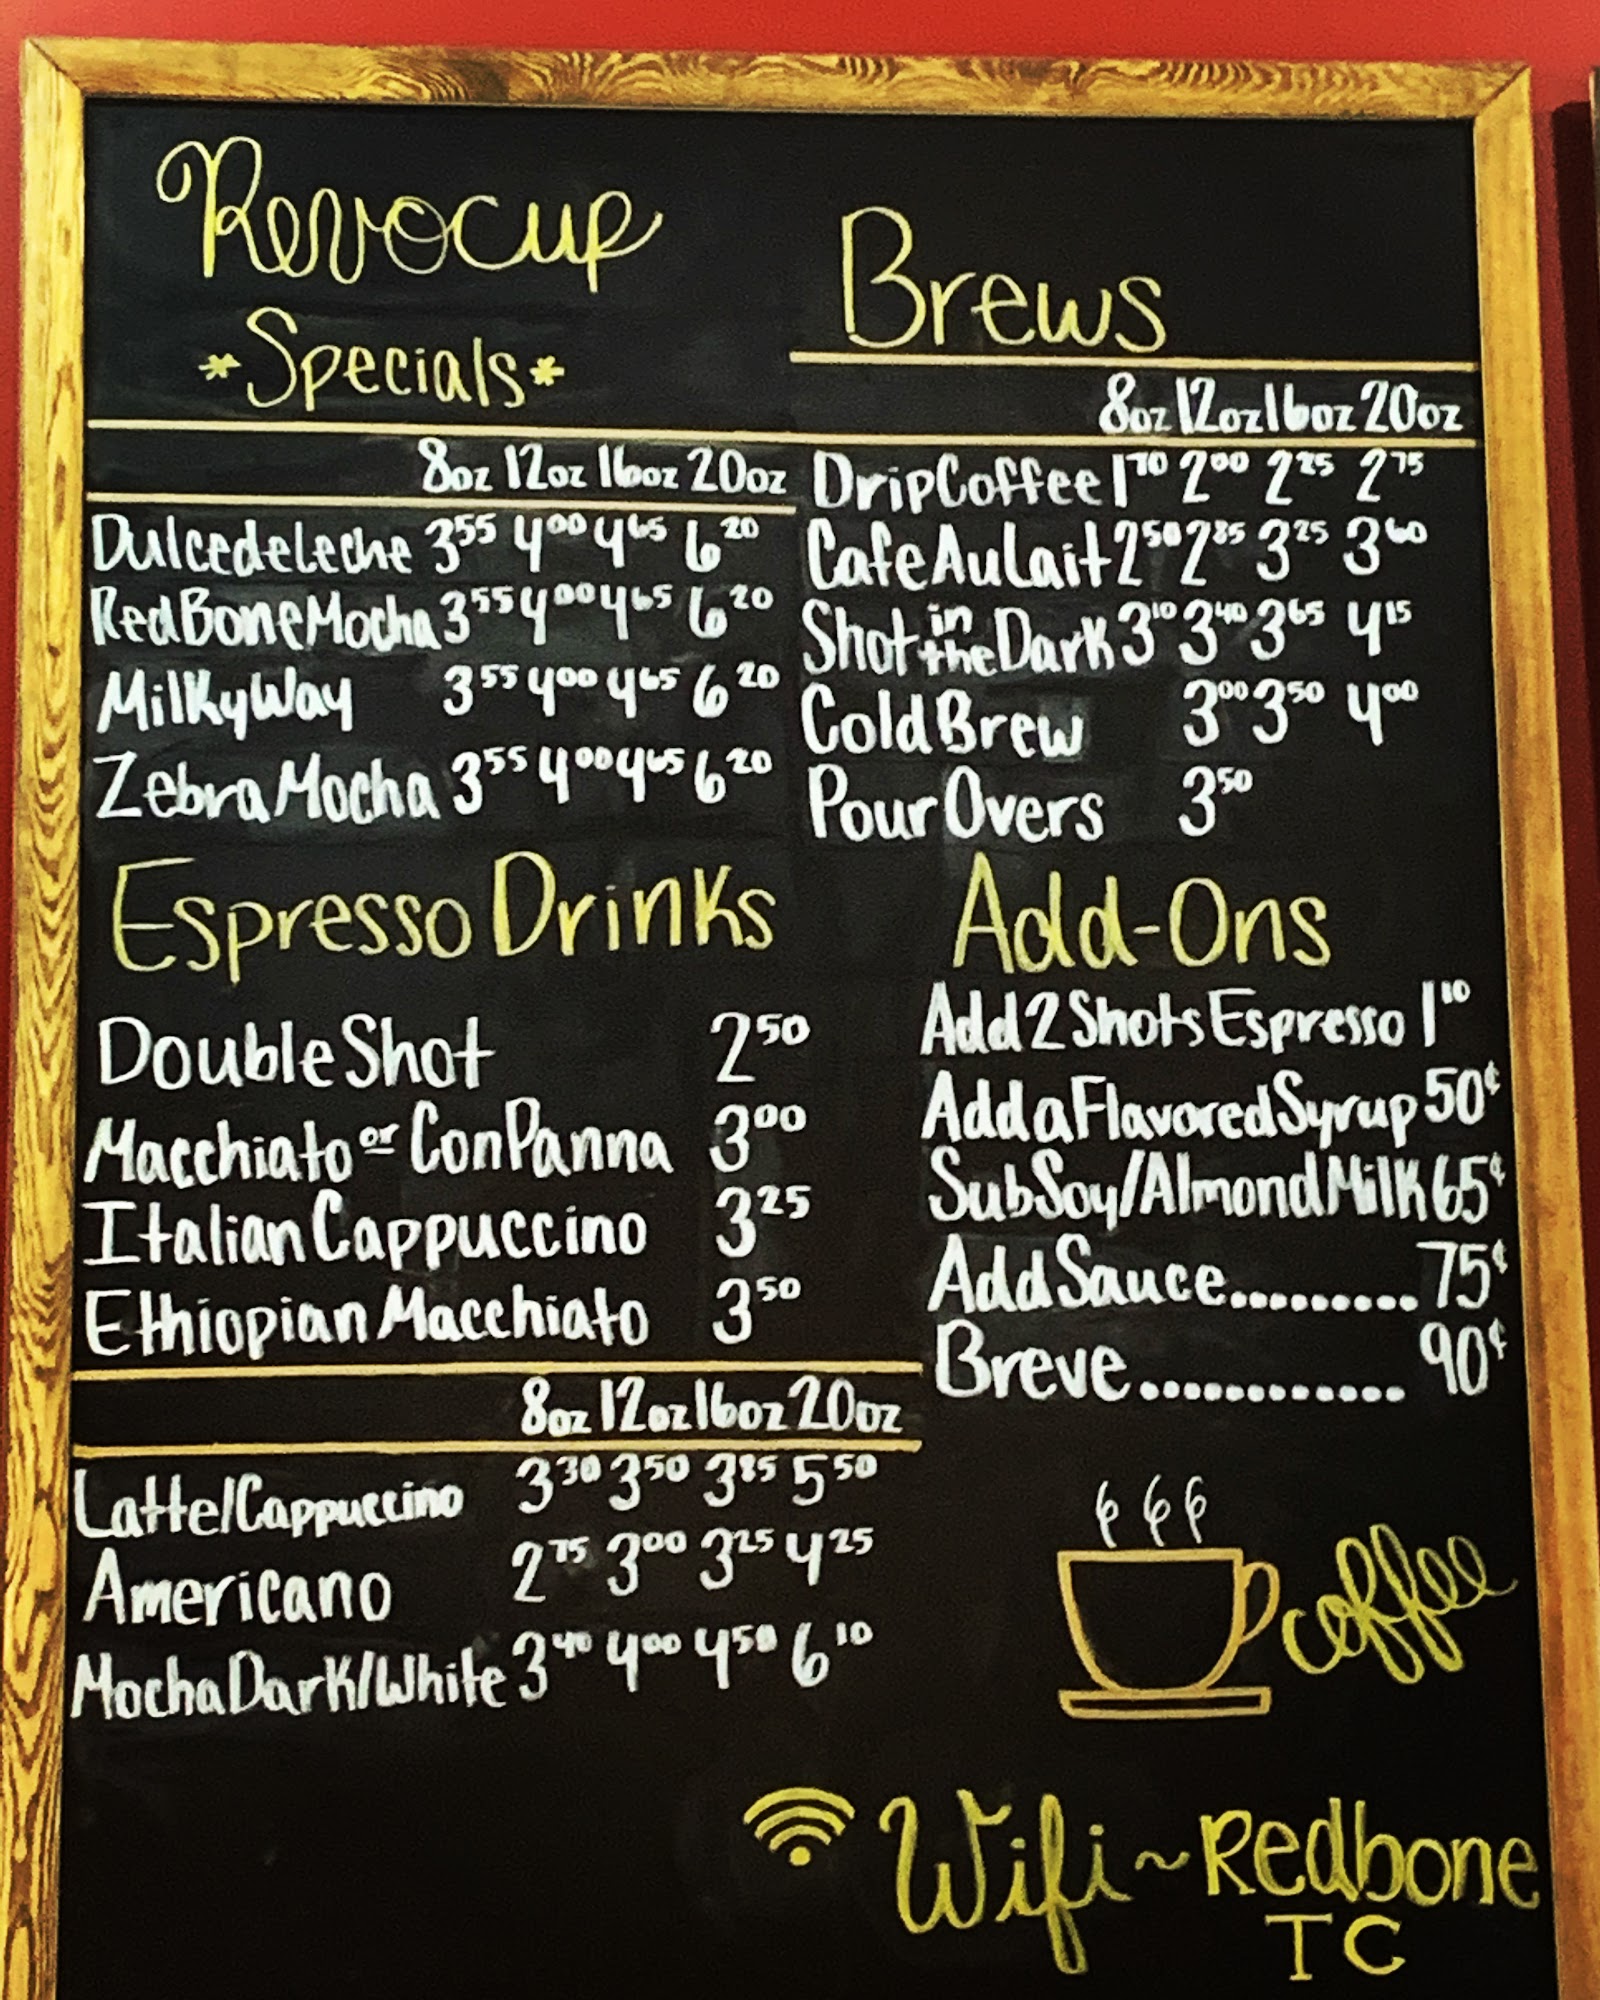 Revocup
*Specials*
8oz 12oz 16oz 20oz
Dulce de Leche 3.55 4.00 4.65 6.20
Red Bone Mocha 3.55 4.00 4.65 6.20
Milky Way 3.55 4.00 4.65 6.20
Zebra Mocha 3.55 4.00 4.65 6.20
Brews
8oz 12oz 16oz 20oz
Drip Coffee 1.70 2.00 2.25 2.75
Cafe Au Lait 2.50 2.85 3.25 3.60
Shot in the Dark 3.10 3.40 3.65 4.15
Cold Brew 3.00 3.50 4.00
Pour Overs 3.50
Espresso Drinks
Double Shot 2.50
Macchiato or Con Panna 3.00
Italian Cappuccino 3.25
Ethiopian Macchiato 3.50
8oz 12oz 16oz 20oz
Latte/Cappuccino 3.30 3.50 3.85 5.50
Americano 2.75 3.00 3.25 4.25
Mocha Dark/White 3.40 4.00 4.50 6.10
Add-Ons
Add 2 Shots Espresso 1.10
Add a Flavored Syrup 50¢
Sub Soy/Almond Milk 65¢
Add Sauce.........75¢
Breve............. 90¢
coffee
Wifi~Redbone
TC